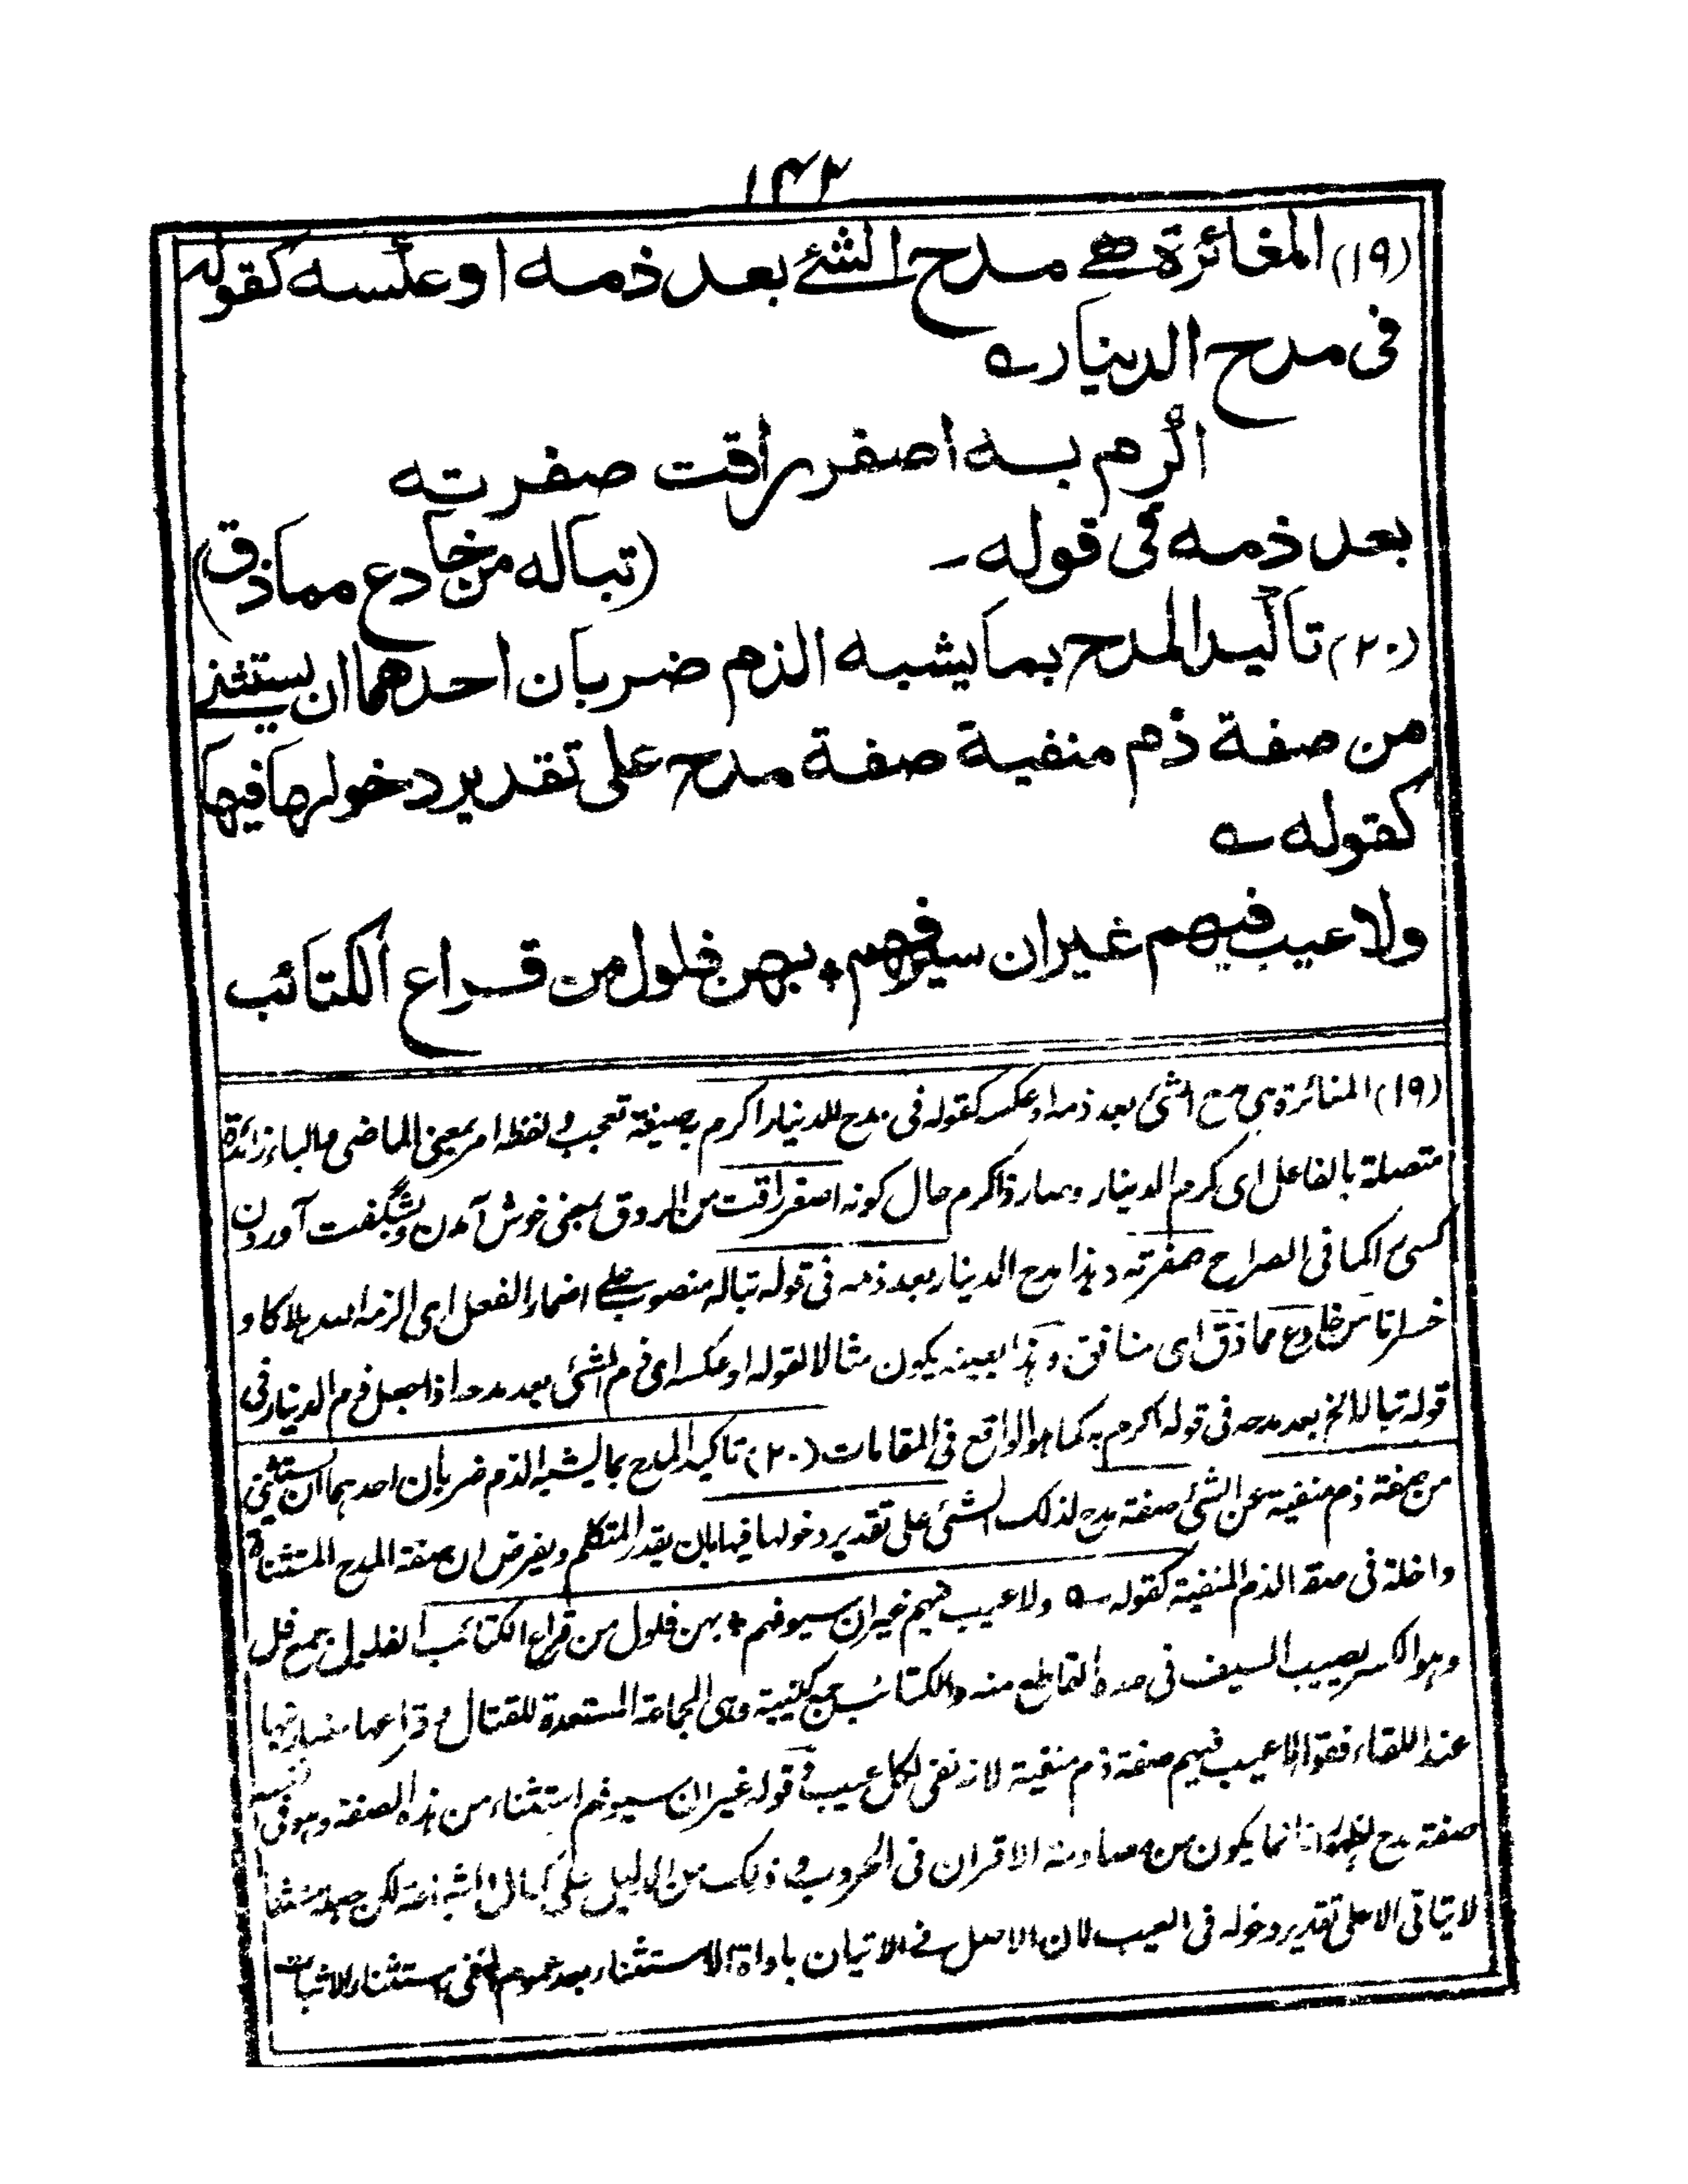 ١٤٢
(١٩) المغائرة هى مدح الشئ بعد ذمه او عكسه كقوله
فى مدح الدينار ؎
اكرم به اصفر راقت صفرته
بعد ذمه فى قوله ۔ (تباله من خادع مماذق)
(٢٠) تاكيد المدح بما يشبه الذم ضربان احدهما ان يستثنى
من صفة ذم منفية صفة مدح على تقدير دخولها فيها
كقوله ؎
ولا عيب فيهم غير ان سيوفهم * بهن فلول من قراع الكتائب
(١٩) المغائرة هى مدح الشئ بعد ذمه او عكسه كقوله فى مدح الدينار اكرم بصيغة تعجب ولفظه امر بمعنى الماضى والباء زائدة
متصلة بالفاعل اى كرم الدينار وصار ذا كرم حال كونه اصفر راقت من الروق بمعنى خوش آمدن وبشگفت آوردن
كسى را كما فى الصراح صفرته وهذا مدح الدينار بعد ذمه فى قوله تباله منصوب على اضمار الفعل اى الزمه الله هلاكا و
خسرانا من خادع مماذق اى منافق وهذا بعينه يكون مثالا لقوله او عكسه اى ذم الشئ بعد مدحه اذا جعل ذم الدينار فى
قوله تباله الخ بعد مدحه فى قوله اكرم به كما هو الواقع فى المقامات (٢٠) تاكيد المدح بما يشبه الذم ضربان احدهما ان يستثنى
من صفة ذم منفية عن الشئ صفة مدح لذلك الشئ على تقدير دخولها فيها بان يقدر المتكلم ويفرض ان صفة المدح المستثناة
داخلة فى صفة الذم المنفية كقوله ؎ ولا عيب فيهم غير ان سيوفهم * بهن فلول من قراع الكتائب الفلول جمع فل
وهو الكسر يصيب السيف فى حده القاطع منه والكتائب جمع كتيبة وهى الجماعة المستعدة للقتال وقراعها مضاربتها
عند اللقاء فقوله لا عيب فيهم صفة ذم منفية لانه نفى لكل عيب وقوله غير ان سيوفهم استثناء من هذه الصفة وهو فى نفسه
صفة مدح انما يكون من مصادمة الاقران فى الحروب وذلك من الدليل على كمال الشجاعة لكن
لا يتاتى الا على تقدير دخوله فى العيب لان الاصل فى الاتيان باداة الاستثناء بعد عموم النفى استثناء الاثبات